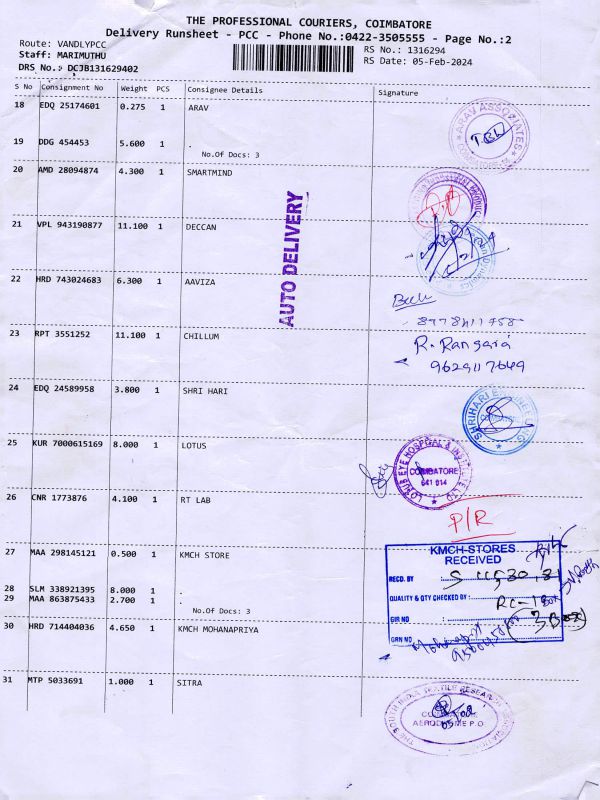 THE PROFESSIONAL COURIERS, COIMBATORE
Delivery Runsheet - PCC - Phone No.:0422-3505555 - Page No.:2
Route: VANDLYPCC
Staff: MARIMUTHU
DRS No.: DCJB131629402
RS No.: 1316294
RS Date: 05-Feb-2024
S No Consignment No Weight PCS Consignee Details Signature
18 EDQ 25174601 0.275 1 ARAV
ARAV ASSOCIATES
19 DDG 454453 5.600 1 .
No.Of Docs: 3
20 AMD 28094874 4.300 1 SMARTMIND
AUTO DELIVERY
21 VPL 943190877 11.100 1 DECCAN
22 HRD 743024683 6.300 1 AAVIZA
23 RPT 3551252 11.100 1 CHILLUM
R. Rangara
9629117649
24 EDQ 24589958 3.800 1 SHRI HARI
25 KUR 7000615169 8.000 1 LOTUS
LOTUS EYE HOSPITAL & INSTITUTE LTD
COIMBATORE
641 014
26 CNR 1773876 4.100 1 RT LAB
P/R
27 MAA 298145121 0.500 1 KMCH STORE
KMCH-STORES
RECEIVED
RECD. BY
QUALITY & QTY CHECKED BY :
GIR NO
GRN NO
28 SLM 338921395 8.000 1 .
29 MAA 863875433 2.700 1 .
No.Of Docs: 3
30 HRD 714404036 4.650 1 KMCH MOHANAPRIYA
31 MTP 5033691 1.000 1 SITRA
THE SOUTH INDIA TEXTILE RESEARCH ASSOCIATION
COIMBATORE
AERODROME P.O.